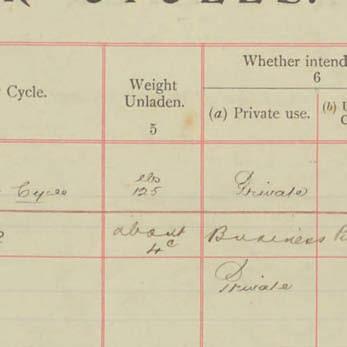 CYCLES.
Cycle.
Weight
Unladen.
5
Whether intend
6
(a) Private use.
(b) U
C
Cycle
lbs
125
Private
about
4c
Business
Private